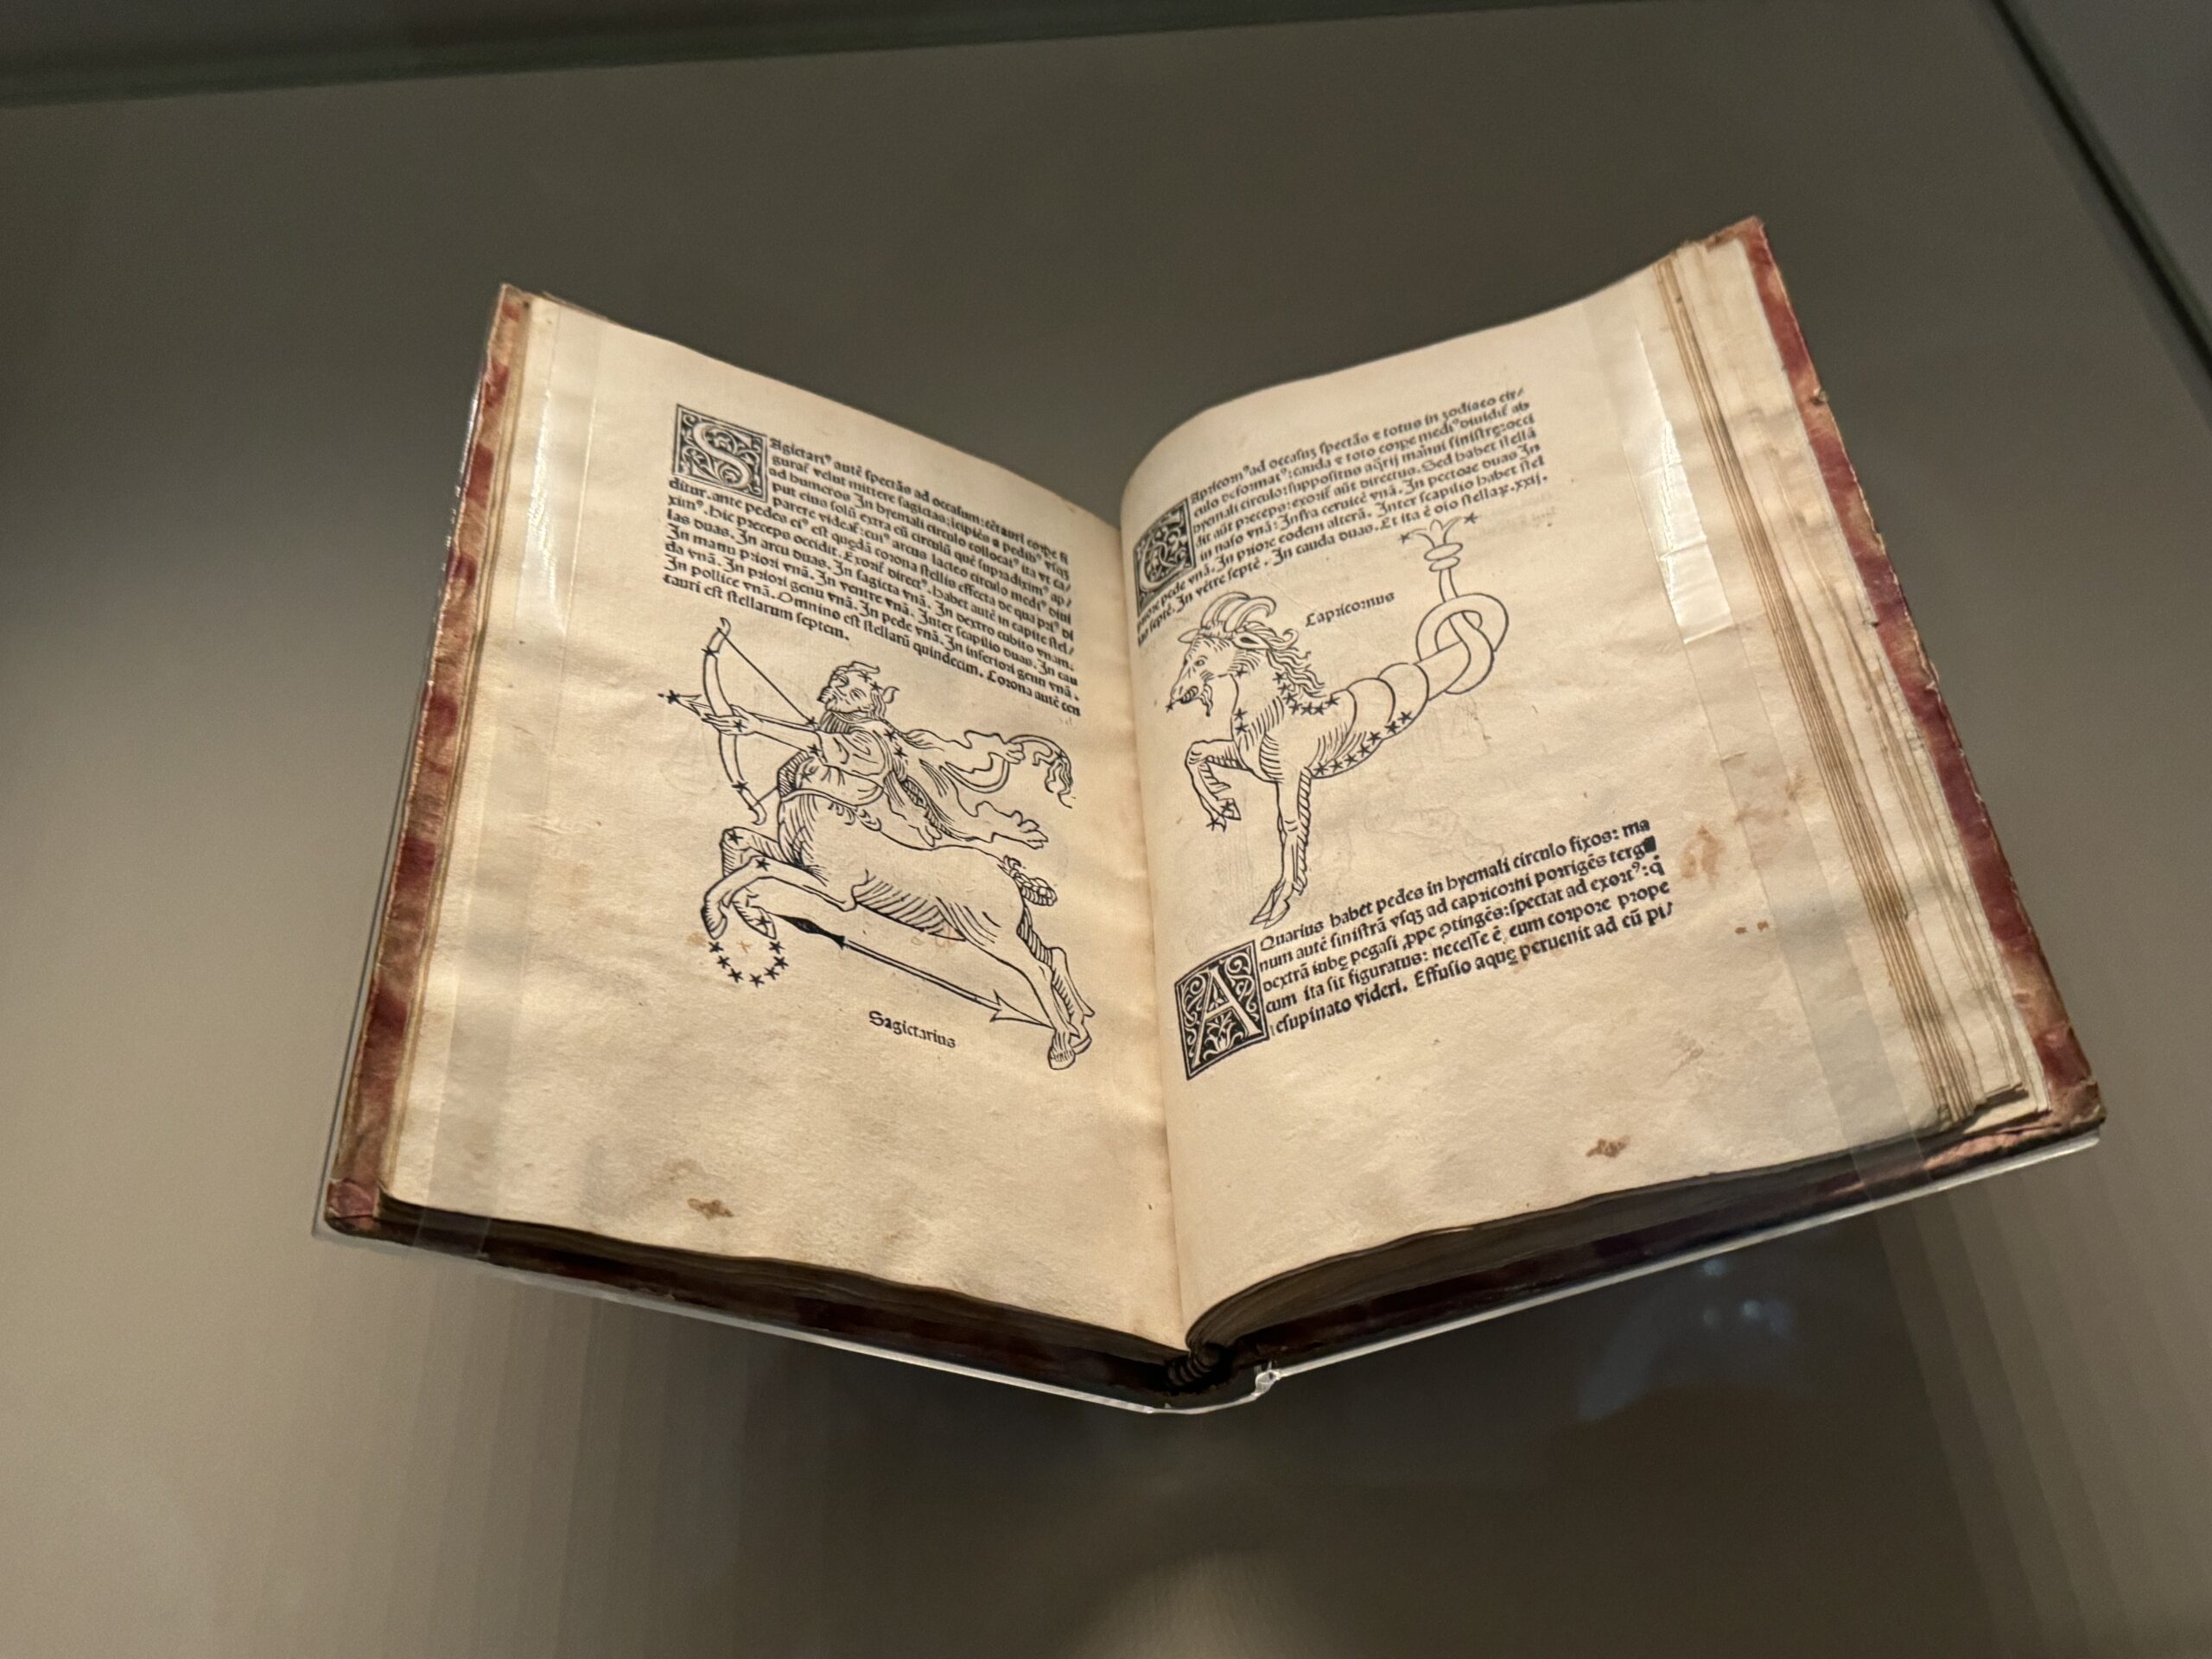 Sagictariꝰ autē spectās ad occasum: cētauri corpe fi
guraŧ velut mittere sagictas: icipiēs a pedibꝰ vsqꝫ
ad humeros In hyemali circulo collocatꝰ ita vt ca/
put eius solū extra eū circulū quē supradiximꝰ ap/
parere videaŧ: cuiꝰ arcus lacteo circulo mediꝰ diui
ditur. ante pedes eiꝰ est quędā corona stellis effecta de qua priꝰ di
ximꝰ. hic preceps occidit. Exoriŧ directꝰ. habet autē in capite stel/
las duas. In arcu duas. In sagicta vnā. In dextro cubito vnam.
In manu priori vnā. In ventre vnā. Inter scapilio duas. In cau
da vnā. In priori genu vnā. In pede vnā. In inferiori genu vnā.
In pollice vnā. Omnino est stellarū quindecim. Corona autē cen
tauri est stellarum septem.
Sagictarius
Capricornꝰ ad occasuꝫ spectās ⁊ totus in zodiaco cir/
culo deformatꝰ: cauda ⁊ toto corpe mediꝰ diuidiŧ ab
hyemali circulo: suppositus aq̄rij manui sinistrę: occi
dit aūt preceps: exoriŧ aūt directus. Sed habet stellā
in naso vnā: Infra ceruicē vnā. In pectore duas In
priore pede vnā. In priore eodem alterā. Inter scapilio habet stel
las septē. In vētre septē. In cauda duas. Et ita ē oīo stellaꝝ. xxij.
Capricornus
Aquarius habēt pedes in hyemali circulo fixos: ma
num autē sinistrā vsqꝫ ad capricorni porrigēs terg
dextrā iubę pegasi ꝓpe ꝯtingēs: spectat ad exortꝰ: q̇
cum ita sit figuratus: necesse ē, eum corpore prope
esupinato videri. Effusio aquę peruenit ad eū pi/